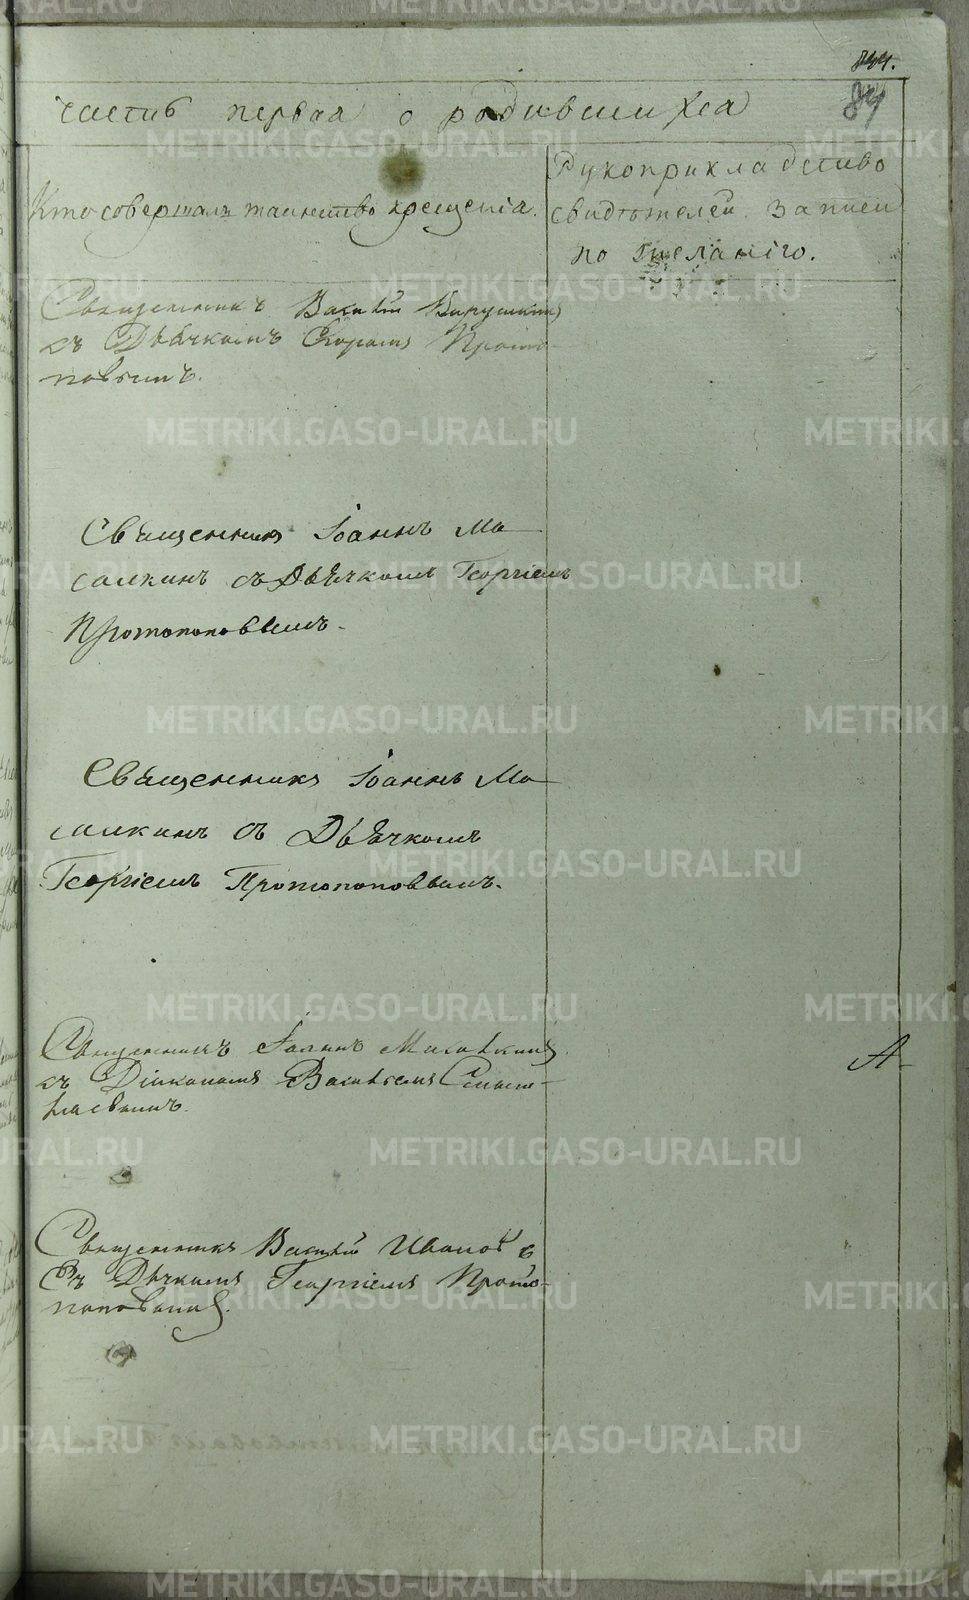 844.
84
часть первая о родившихся
Кто совершал таинство крещенiя.
Рукоприкладство
свидѣтелей записи
по желанiю.
Священникъ Василiй
съ Дьячкомъ Прото
поповымъ.
Священникъ Iоаннъ Ма
салкинъ съ Дьячкомъ Георгiемъ
Протопоповымъ.
Священникъ Iоаннъ Ма
салкинъ съ Дьячкомъ
Георгiемъ Протопоповымъ.
Священникъ Iоаннъ
съ Дiакономъ Василiемъ
Священникъ Василiй Ивановъ
съ Дьячкомъ Георгiемъ Прото-
поповымъ.
METRIKI.GASO-URAL.RU